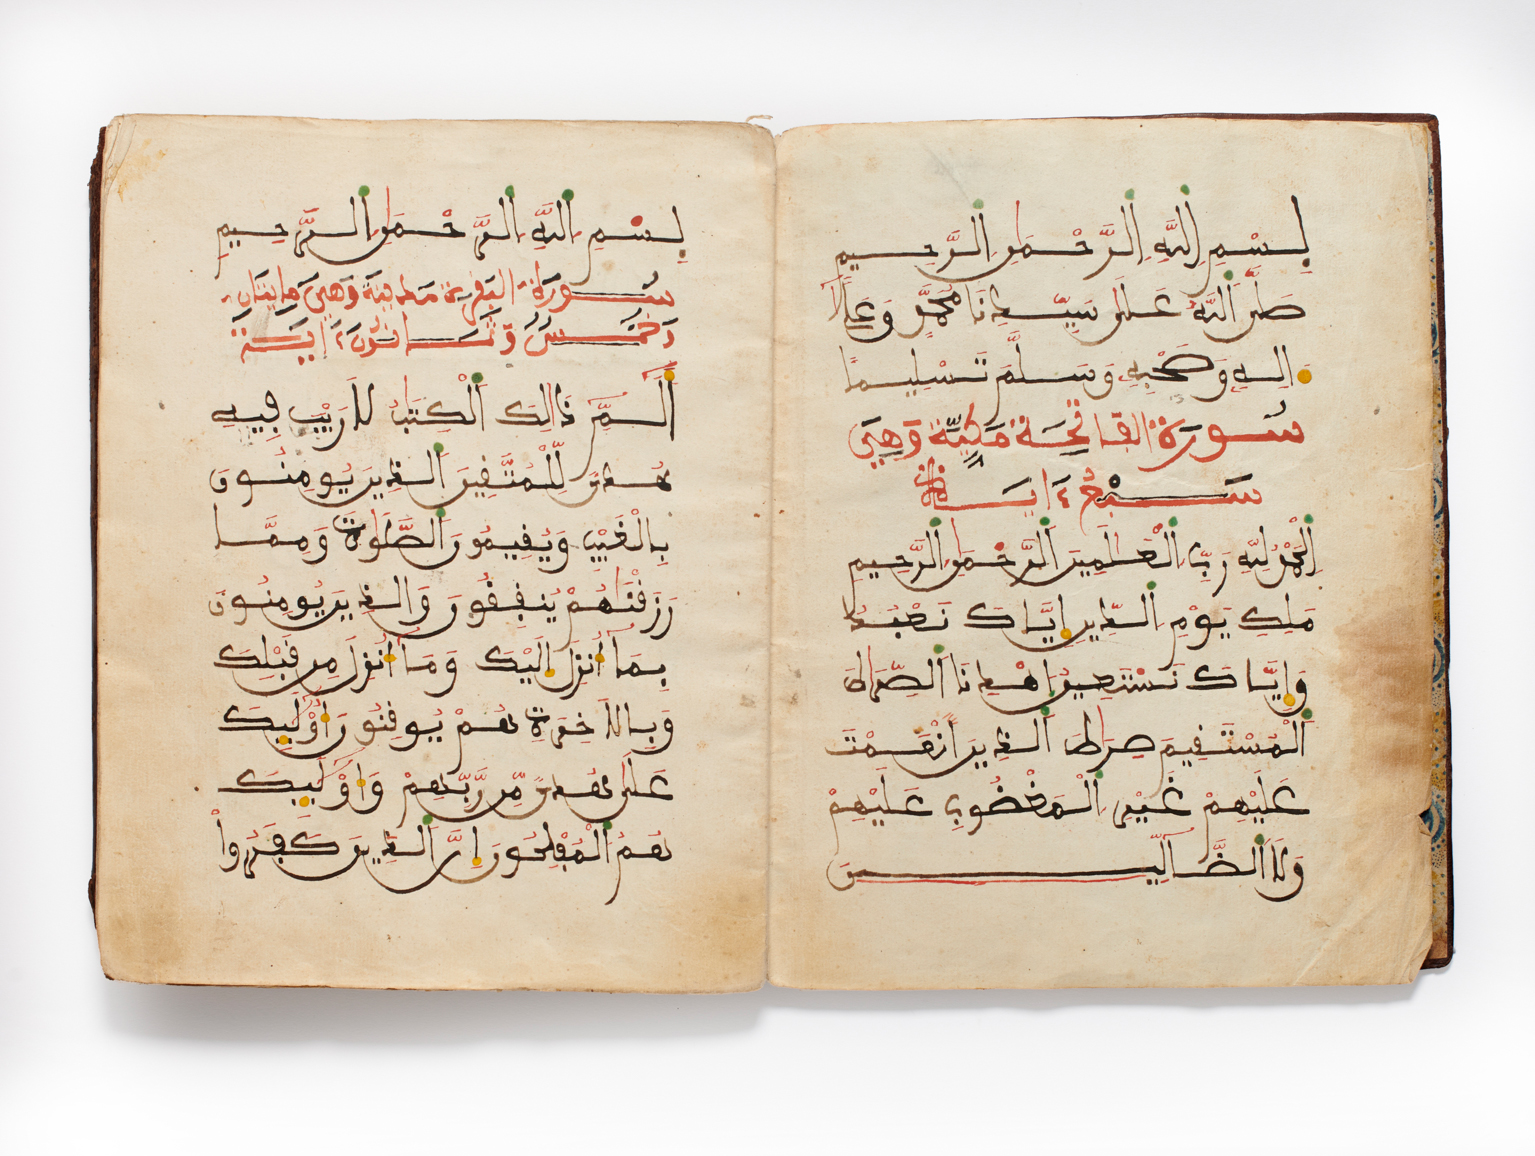 بِسْمِ اللَّهِ الرَّحْمَٰنِ الرَّحِيمِ
صَلَّى اللَّهُ عَلَى سَيِّدِنَا مُحَمَّدٍ وَعَلَىٰ
ءَالِهِ وَصَحْبِهِ وَسَلَّمَ تَسْلِيمًا
سُورَةُ الفَاتِحَةِ مَكِّيَّةٌ وَهِيَ
سَبْعُ ءَايَاتٍ
الْحَمْدُ لِلَّهِ رَبِّ الْعَٰلَمِينَ الرَّحْمَٰنِ الرَّحِيمِ
مَلِكِ يَوْمِ الدِّينِ إِيَّاكَ نَعْبُدُ
وَإِيَّاكَ نَسْتَعِينُ اهْدِنَا الصِّرَٰطَ
الْمُسْتَقِيمَ صِرَٰطَ الَّذِينَ أَنْعَمْتَ
عَلَيْهِمْ غَيْرِ الْمَغْضُوبِ عَلَيْهِمْ
وَلَا الضَّالِّينَ
بِسْمِ اللَّهِ الرَّحْمَٰنِ الرَّحِيمِ
سُورَةُ البَقَرَةِ مَدَنِيَّةٌ وَهِيَ مِايَتَانِ
وَخَمْسٌ وَثَمَانُونَ ءَايَةً
الٓمٓ ذَٰلِكَ الْكِتَٰبُ لَا رَيْبَ فِيهِ
هُدًى لِّلْمُتَّقِينَ الَّذِينَ يُومِنُونَ
بِالْغَيْبِ وَيُقِيمُونَ الصَّلَوٰةَ وَمِمَّا
رَزَقْنَٰهُمْ يُنفِقُونَ وَالَّذِينَ يُومِنُونَ
بِمَا أُنزِلَ إِلَيْكَ وَمَا أُنزِلَ مِن قَبْلِكَ
وَبِالَاخِرَةِ هُمْ يُوقِنُونَ أُوْلَٰئِكَ
عَلَىٰ هُدًى مِّن رَّبِّهِمْ وَأُوْلَٰئِكَ
هُمُ الْمُفْلِحُونَ إِنَّ الَّذِينَ كَفَرُوا